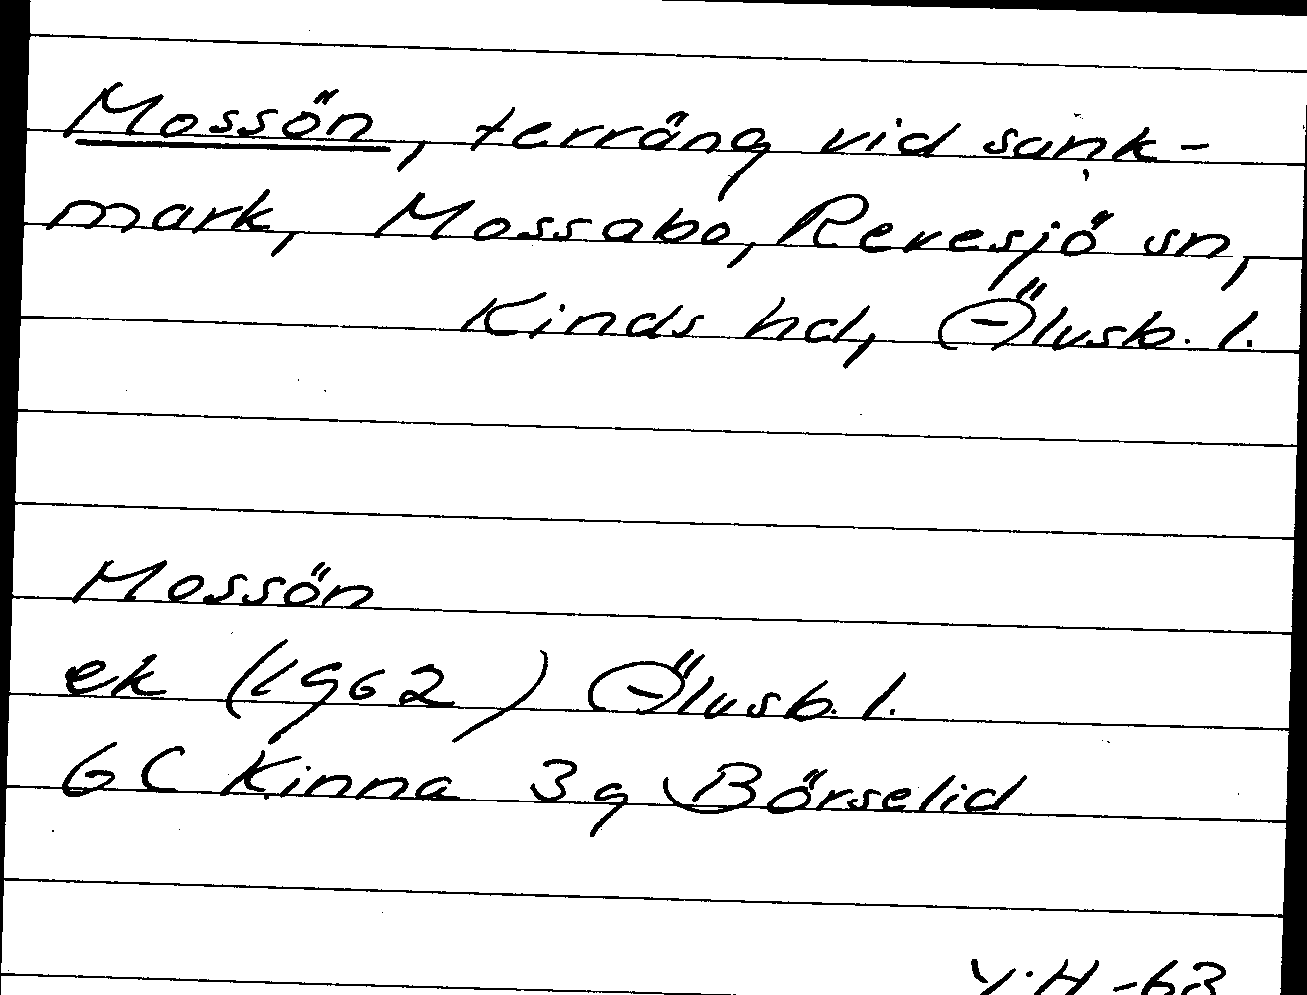 Mossön, terräng vid sank-
mark, Mossabo, Revesjö sn,
Kinds hd, Älvsb. l.
Mossön
ek (1962) Älvsb. l.
6C Kinna 3g Börselid
V.H -63